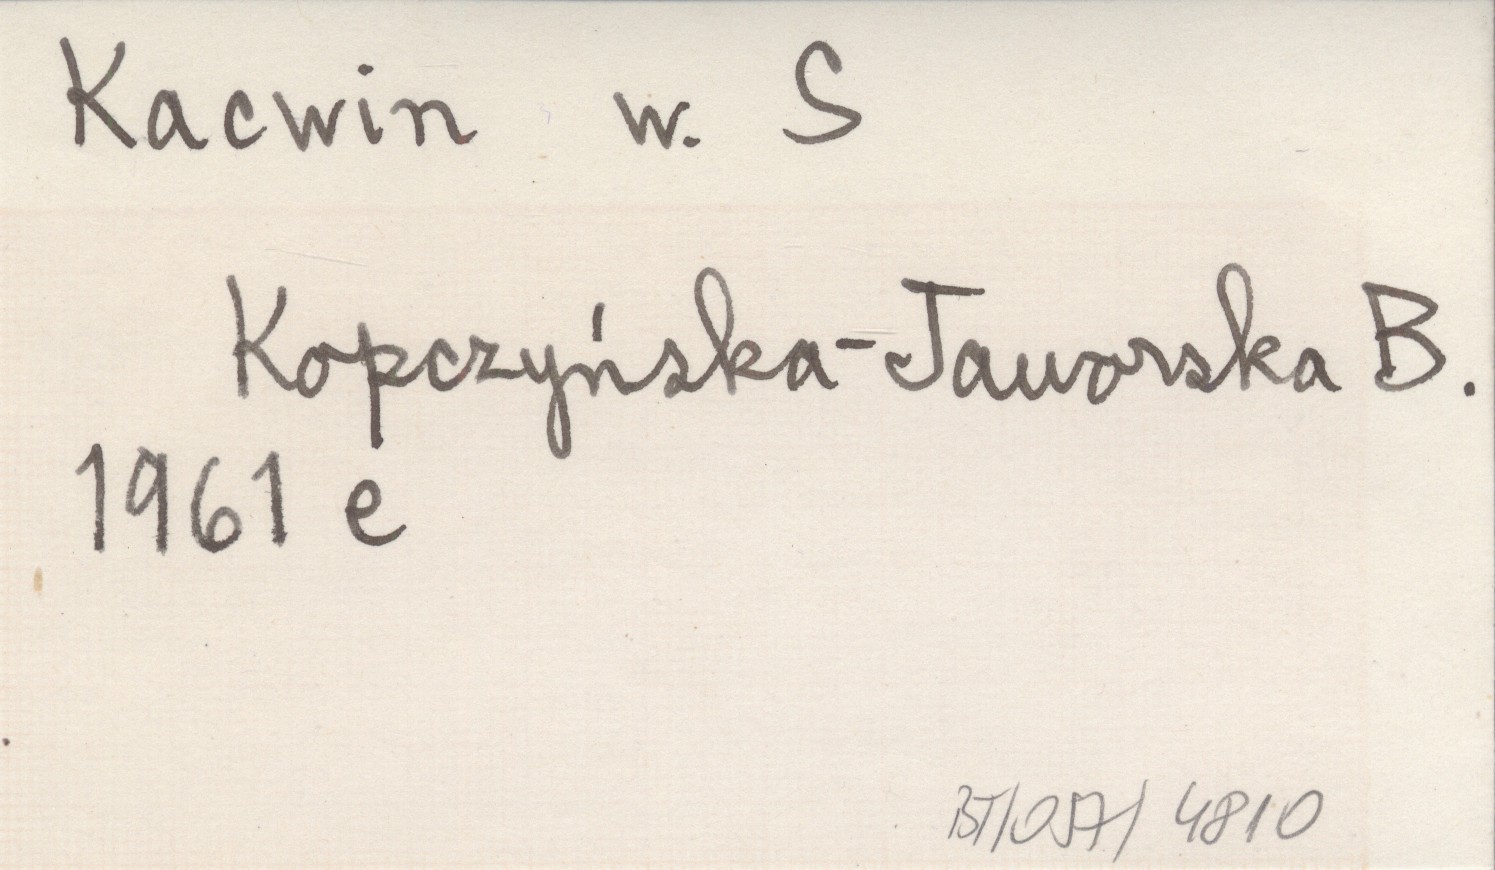 Kacwin w. S
Kopczyńska-Jaworska B.
1961 e
BT/057/ 4810